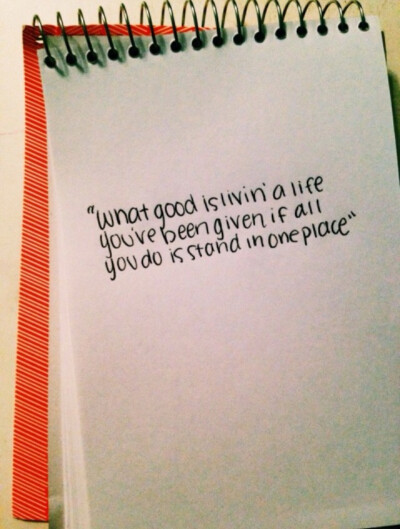 "what good is livin' a life
you've been given if all
you do is stand in one place"